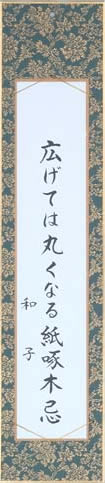 広げては丸くなる紙啄木忌
和子